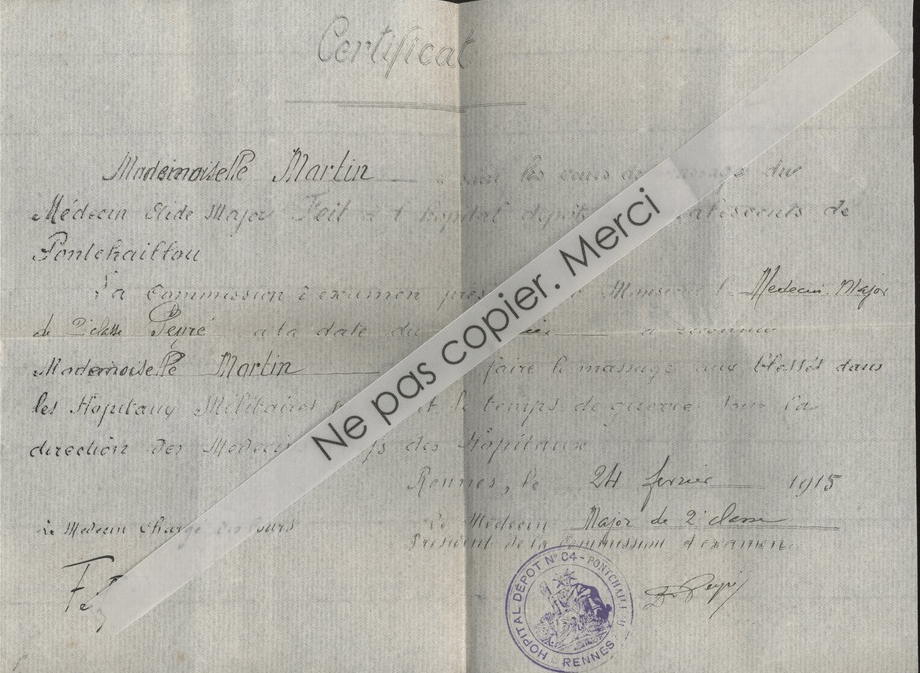 Certificat
Mademoiselle Martin a suivi les cours de massage du
Médecin Aide Major Feit à l'hôpital dépôt de
Pontchaillou
La Commission d'examen Monsieur le Medecin Major
de 2e classe Peyré a la date du a reconnu
Mademoiselle Martin faire le massage aux blessés dans
les Hôpitaux Militaires et le temps de guerre sous la
direction des Medecins des Hôpitaux
Rennes, le 24 fevrier 1915
Le Medecin Chargé du Cours
Le Médecin Major de 2e classe
President de la Commission d'examen
Ne pas copier. Merci
HOPITAL DÉPOT N° 04 - PONTCHAILLOU
RENNES